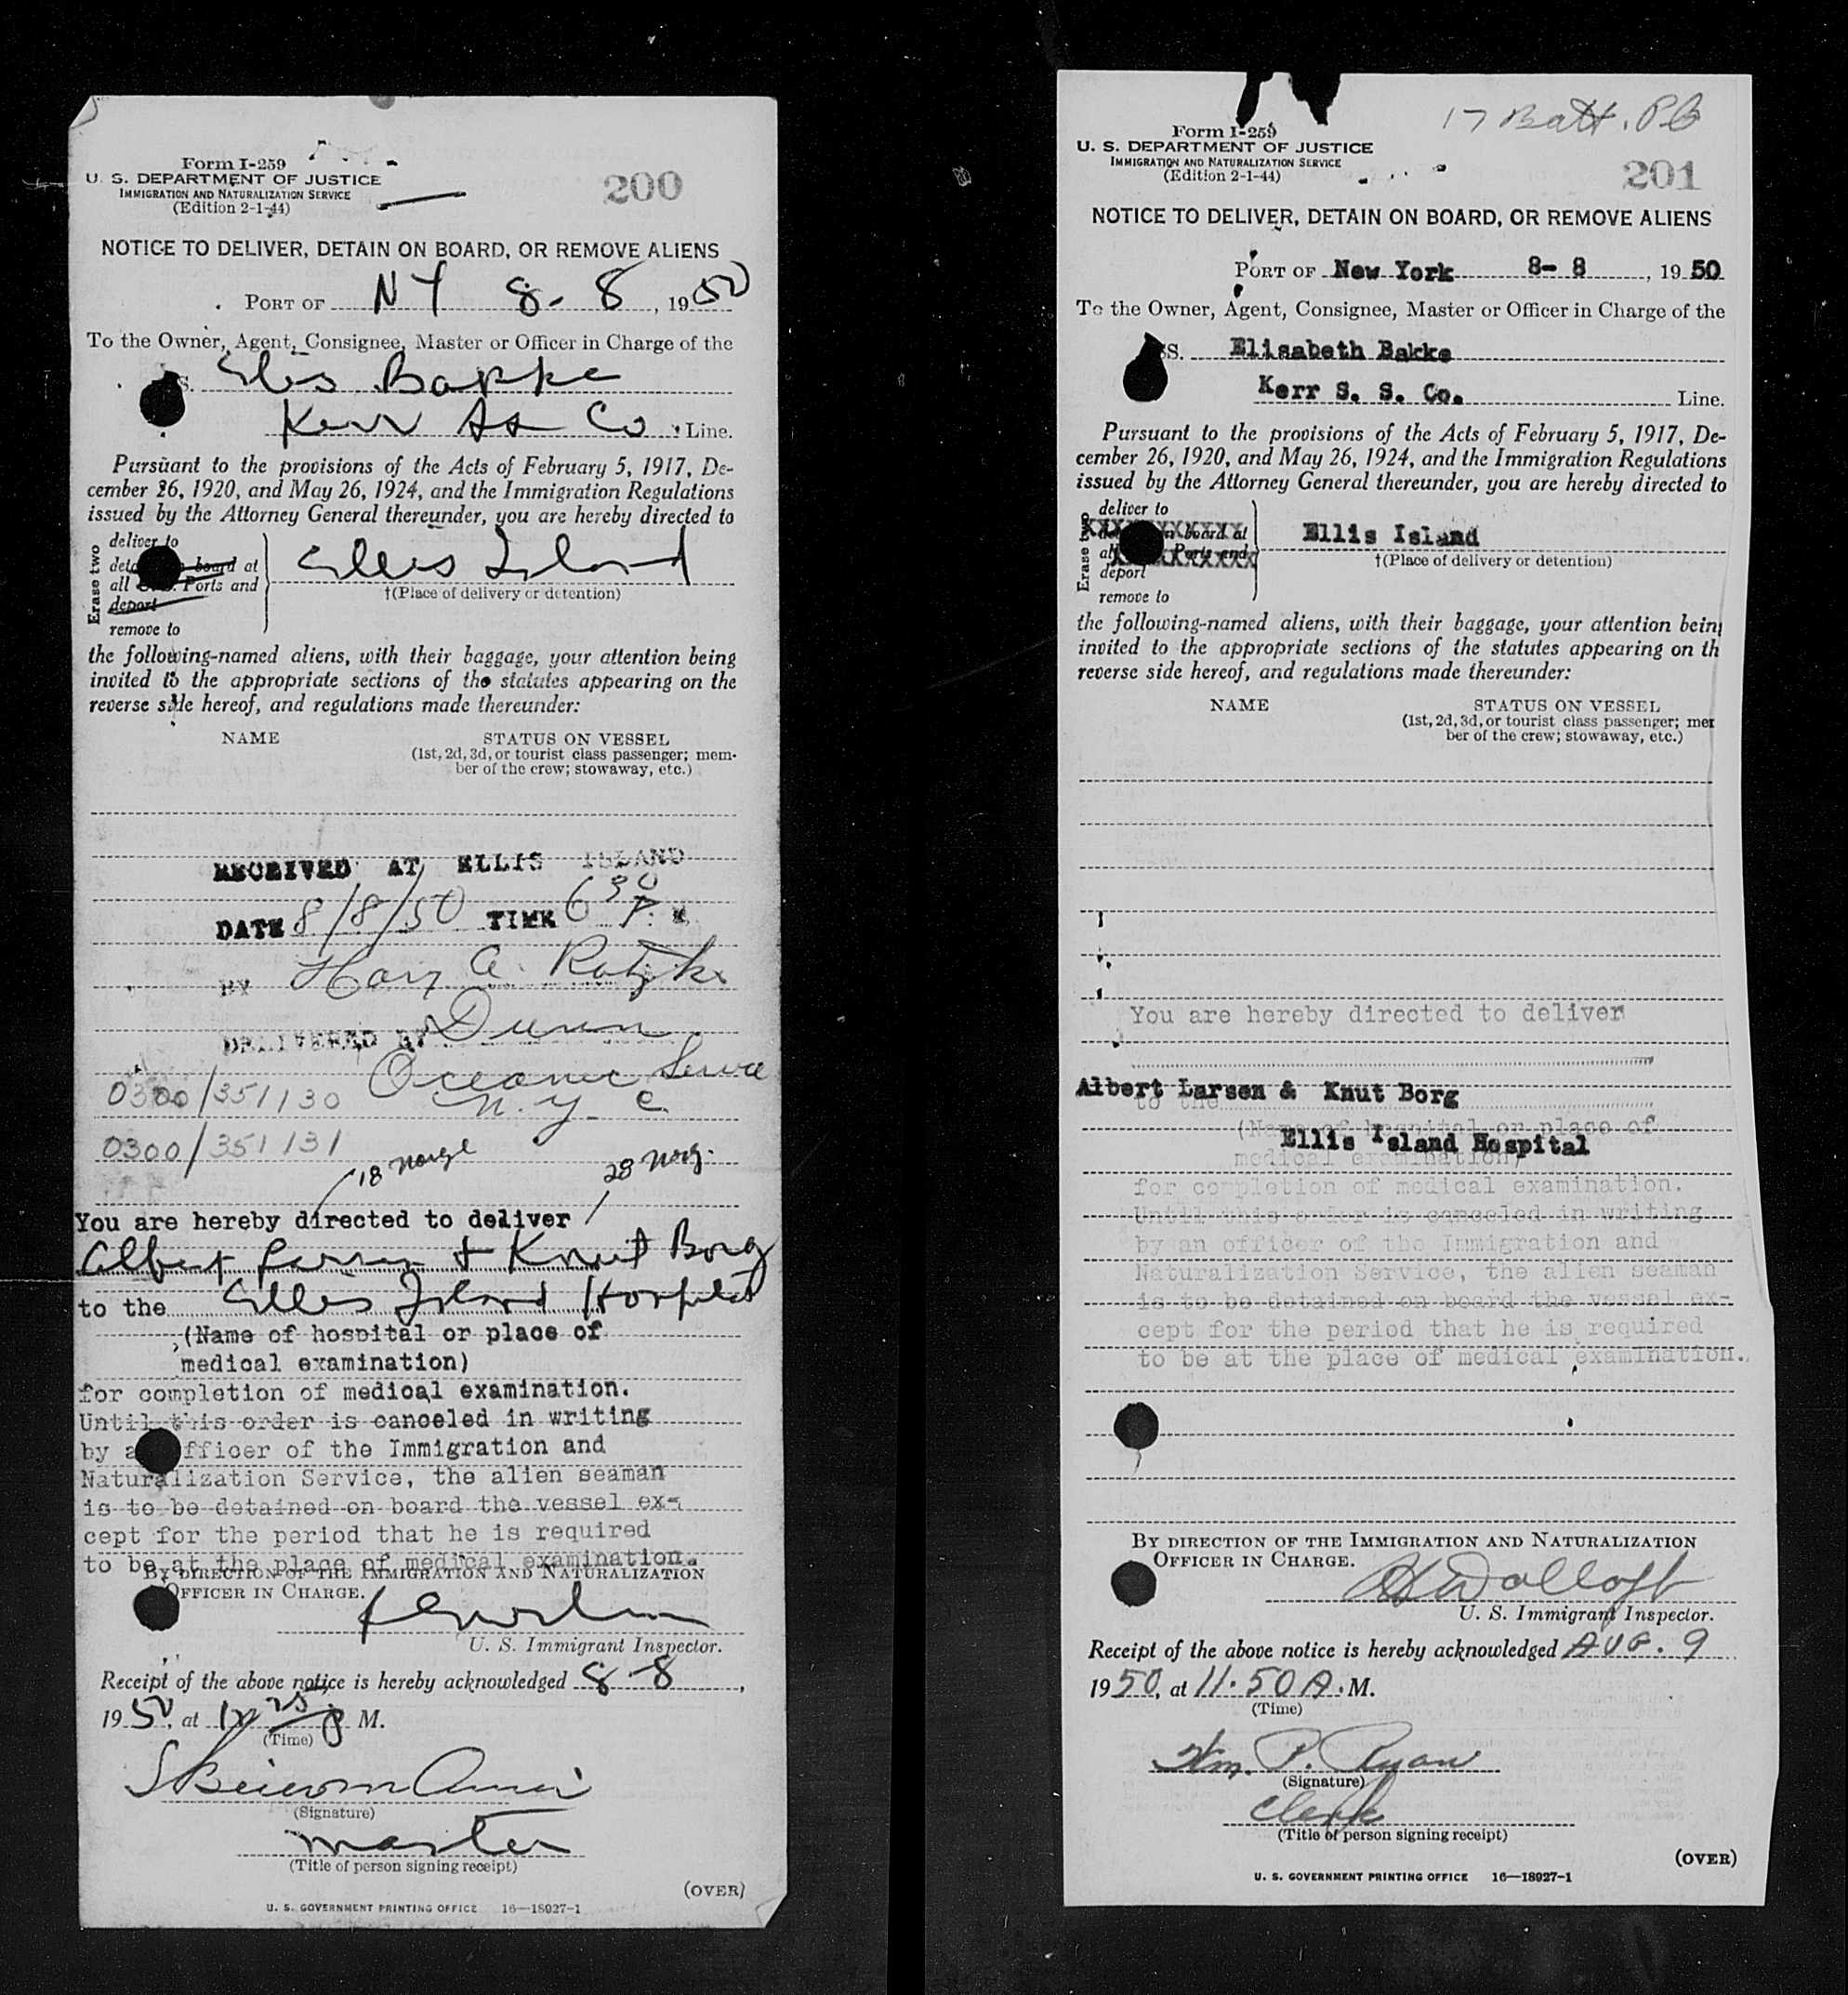 Form I-259
U. S. DEPARTMENT OF JUSTICE
IMMIGRATION AND NATURALIZATION SERVICE
(Edition 2-1-44)
200
NOTICE TO DELIVER, DETAIN ON BOARD, OR REMOVE ALIENS
PORT OF NY 8-8, 1950
To the Owner, Agent, Consignee, Master or Officer in Charge of the
S. Elis Bakke
Kerr SS Co Line.
Pursuant to the provisions of the Acts of February 5, 1917, De-
cember 26, 1920, and May 26, 1924, and the Immigration Regulations
issued by the Attorney General thereunder, you are hereby directed to
Erase two
deliver to
board at
all Ports and
deport
remove to
Ellis Island
†(Place of delivery or detention)
the following-named aliens, with their baggage, your attention being
invited to the appropriate sections of the statutes appearing on the
reverse side hereof, and regulations made thereunder:
NAME STATUS ON VESSEL
(1st, 2d, 3d, or tourist class passenger; mem-
ber of the crew; stowaway, etc.)
RECEIVED AT ELLIS ISLAND
DATE 8/8/50 TIME 6 30 P. M
BY A.
DELIVERED BY Dunn
Oceanic Service
N. Y. C.
0300/351130
0300/351131
18 28
You are hereby directed to deliver
Albert Larsen + Knut Borg
to the Ellis Island Hospital
(Name of hospital or place of
medical examination)
for completion of medical examination.
Until this order is canceled in writing
by a fficer of the Immigration and
Naturalization Service, the alien seaman
is to be detained on board the vessel ex-
cept for the period that he is required
to be at the place of medical examination.
BY DIRECTION OF THE IMMIGRATION AND NATURALIZATION
OFFICER IN CHARGE.
U. S. Immigrant Inspector.
Receipt of the above notice is hereby acknowledged 8-8,
1950, at M.
(Time)
(Signature)
master
(Title of person signing receipt)
(OVER)
U. S. GOVERNMENT PRINTING OFFICE 16—18927-1
17 Batt. Pl
Form I-259
U. S. DEPARTMENT OF JUSTICE
IMMIGRATION AND NATURALIZATION SERVICE
(Edition 2-1-44)
201
NOTICE TO DELIVER, DETAIN ON BOARD, OR REMOVE ALIENS
PORT OF New York 8- 8, 19 50
To the Owner, Agent, Consignee, Master or Officer in Charge of the
SS. Elisabeth Bakke
Kerr S. S. Co. Line.
Pursuant to the provisions of the Acts of February 5, 1917, De-
cember 26, 1920, and May 26, 1924, and the Immigration Regulations
issued by the Attorney General thereunder, you are hereby directed to
Erase two
deliver to
n board at
all Ports and
deport
remove to
Ellis Island
†(Place of delivery or detention)
the following-named aliens, with their baggage, your attention being
invited to the appropriate sections of the statutes appearing on th
reverse side hereof, and regulations made thereunder:
NAME STATUS ON VESSEL
(1st, 2d, 3d, or tourist class passenger; mem
ber of the crew; stowaway, etc.)
You are hereby directed to deliver
Albert Larsen & Knut Borg
to the
(Name of hospital or place of
Ellis Island Hospital
medical examination)
for completion of medical examination.
Until this order is canceled in writing
by an officer of the Immigration and
Naturalization Service, the alien seaman
is to be detained on board the vessel ex-
cept for the period that he is required
to be at the place of medical examination.
BY DIRECTION OF THE IMMIGRATION AND NATURALIZATION
OFFICER IN CHARGE.
U. S. Immigrant Inspector.
Receipt of the above notice is hereby acknowledged AUG. 9
1950, at 11.50 A. M.
(Time)
Wm. P. Ryan
(Signature)
Clerk
(Title of person signing receipt)
(OVER)
U. S. GOVERNMENT PRINTING OFFICE 16—18927-1